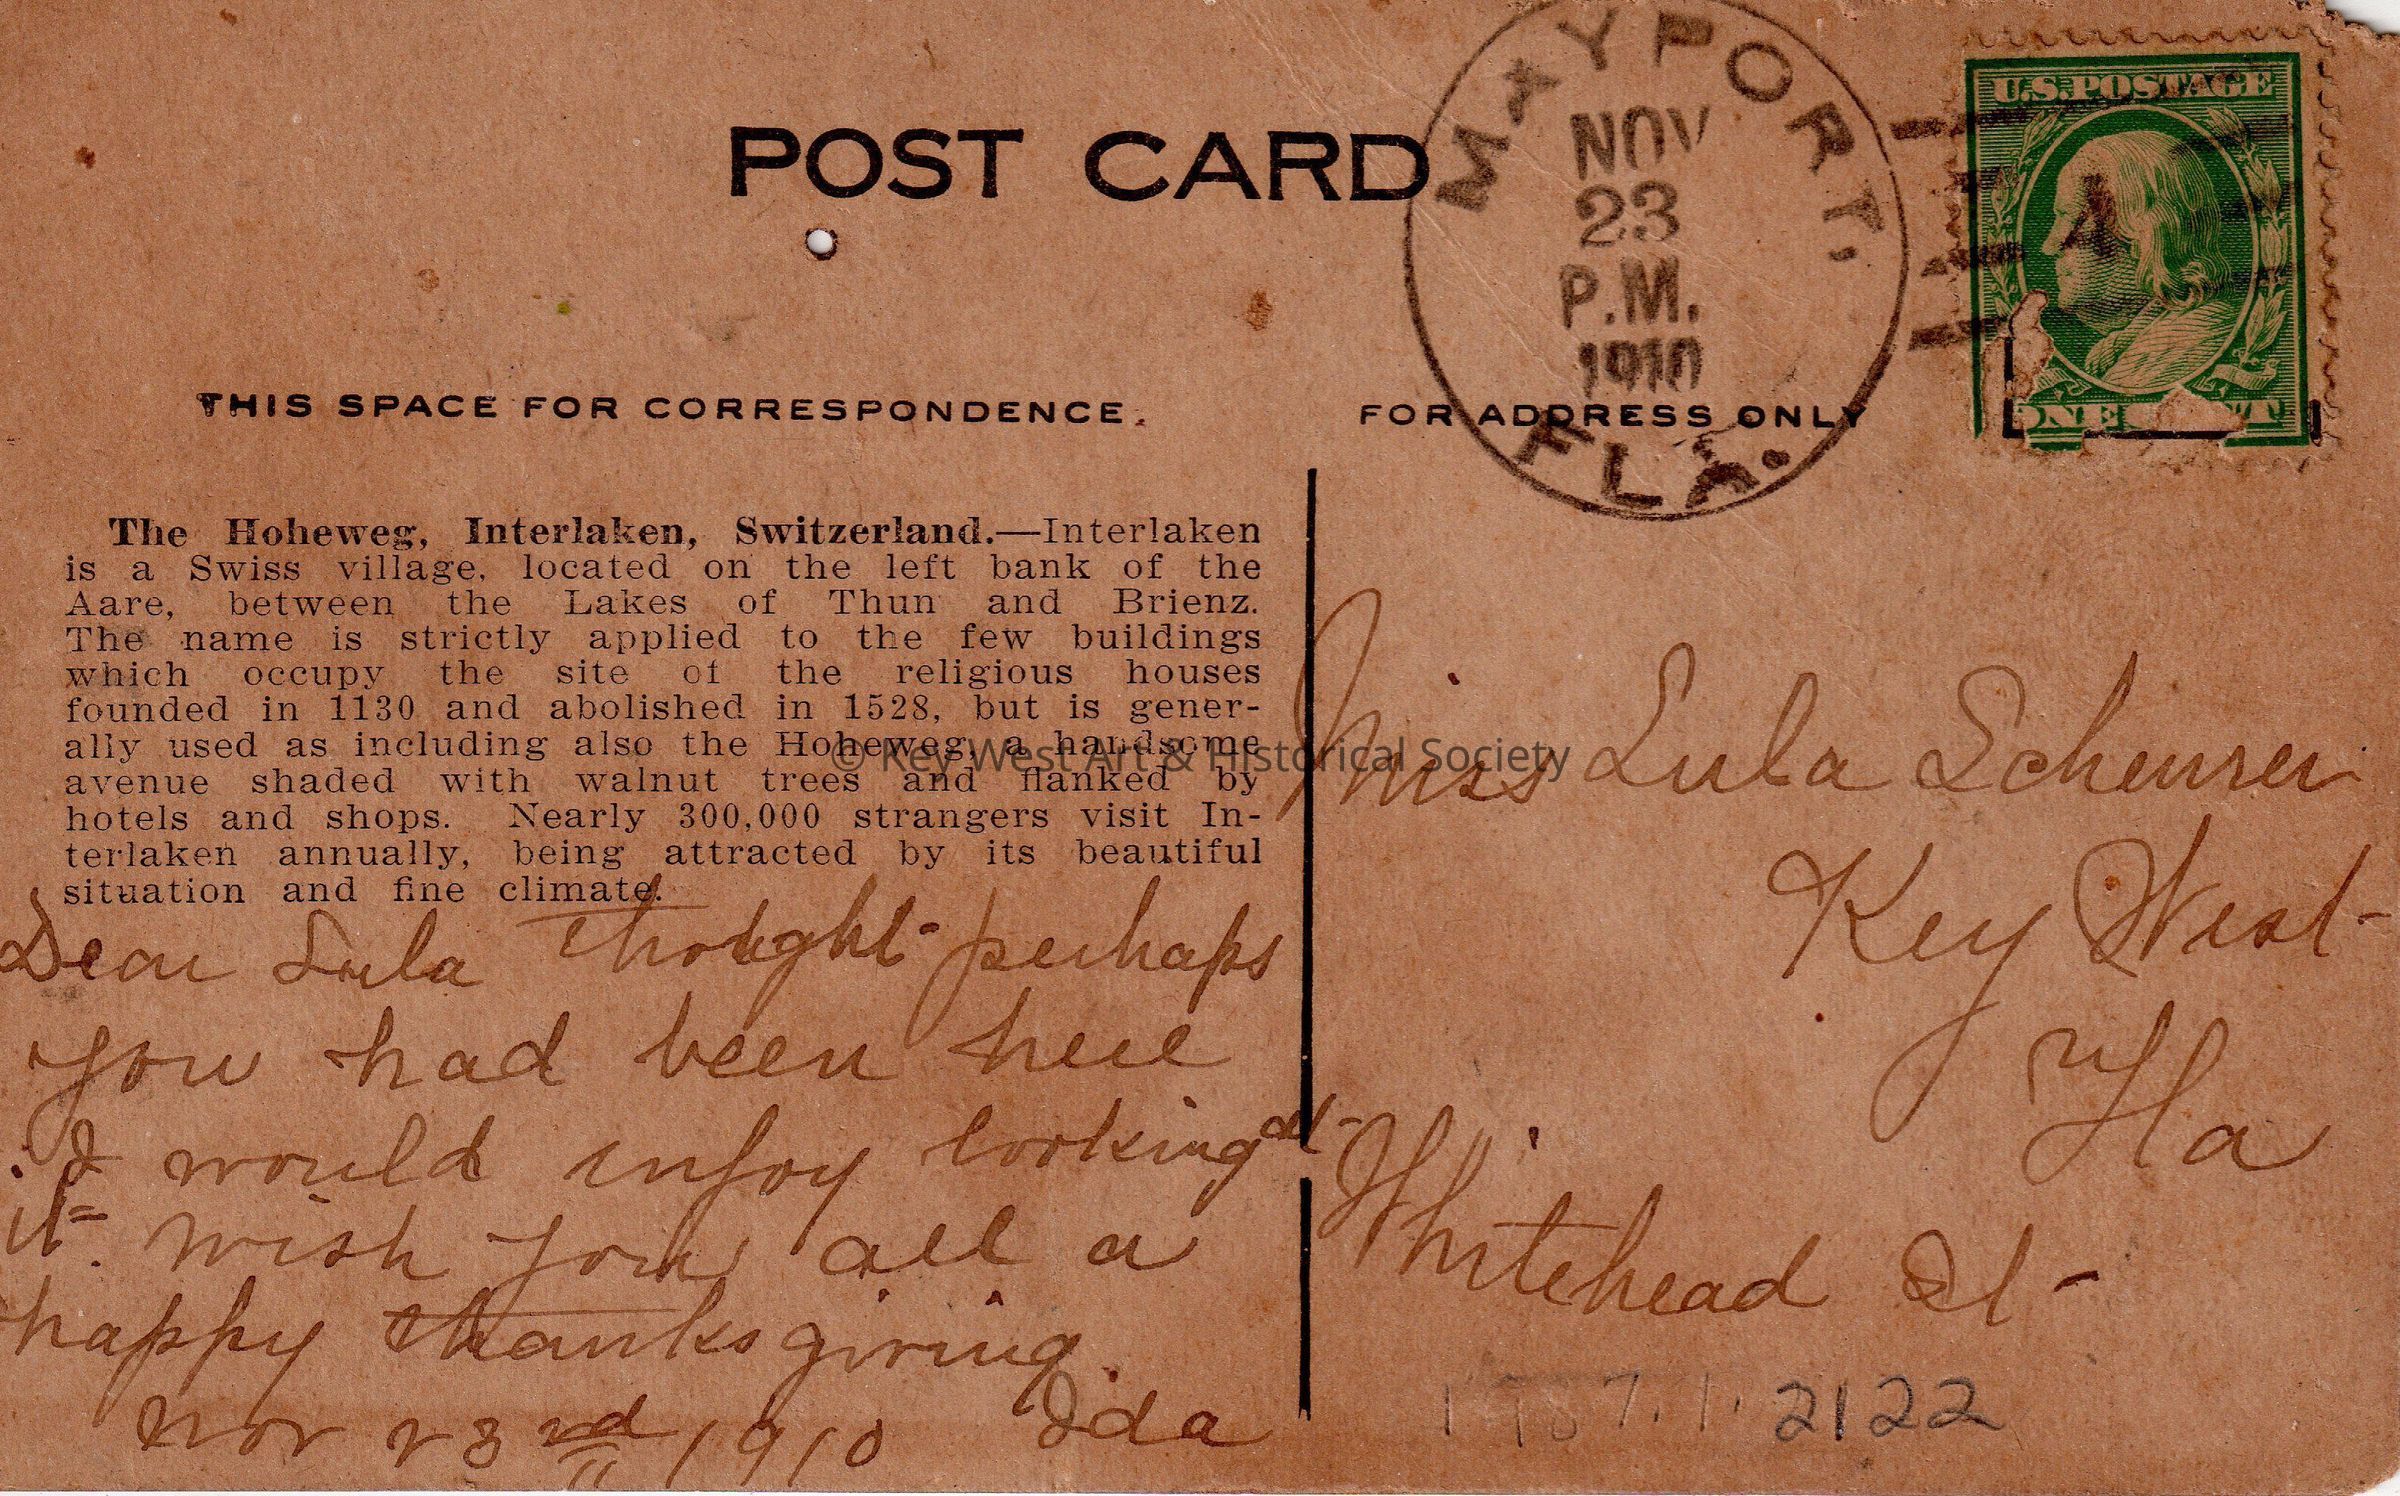 POST CARD
MAYPORT,
NOV
23
P.M.
1910
FLA.
U.S.POSTAGE
ONE CENT
THIS SPACE FOR CORRESPONDENCE.
FOR ADDRESS ONLY
The Hoheweg, Interlaken, Switzerland.—Interlaken
is a Swiss village, located on the left bank of the
Aare, between the Lakes of Thun and Brienz.
The name is strictly applied to the few buildings
which occupy the site of the religious houses
founded in 1130 and abolished in 1528, but is gener-
ally used as including also the Hoheweg, a handsome
avenue shaded with walnut trees and flanked by
hotels and shops. Nearly 300,000 strangers visit In-
terlaken annually, being attracted by its beautiful
situation and fine climate.
© Key West Art & Historical Society
Dear Lula thought perhaps
you had been here
I would injoy looking at
it. Wish you all a
happy thanksgiving.
Nov 23rd 1910 Ida
Miss Lula Scheurer
Key West
Fla
Whitehead St
2122